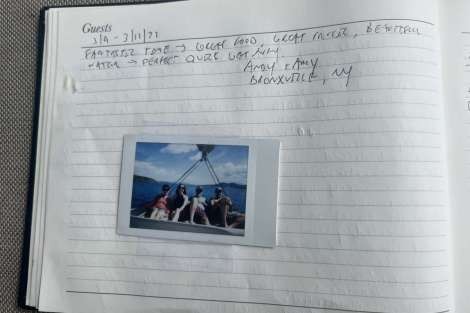 Guests
3/9 - 3/11/22
FANTASTIC TIME → GREAT FOOD, GREAT MUSIC, BEAUTIFUL
WATER → PERFECT QUICK GETAWAY
ANDY & AMY
BRONXVILLE, NY